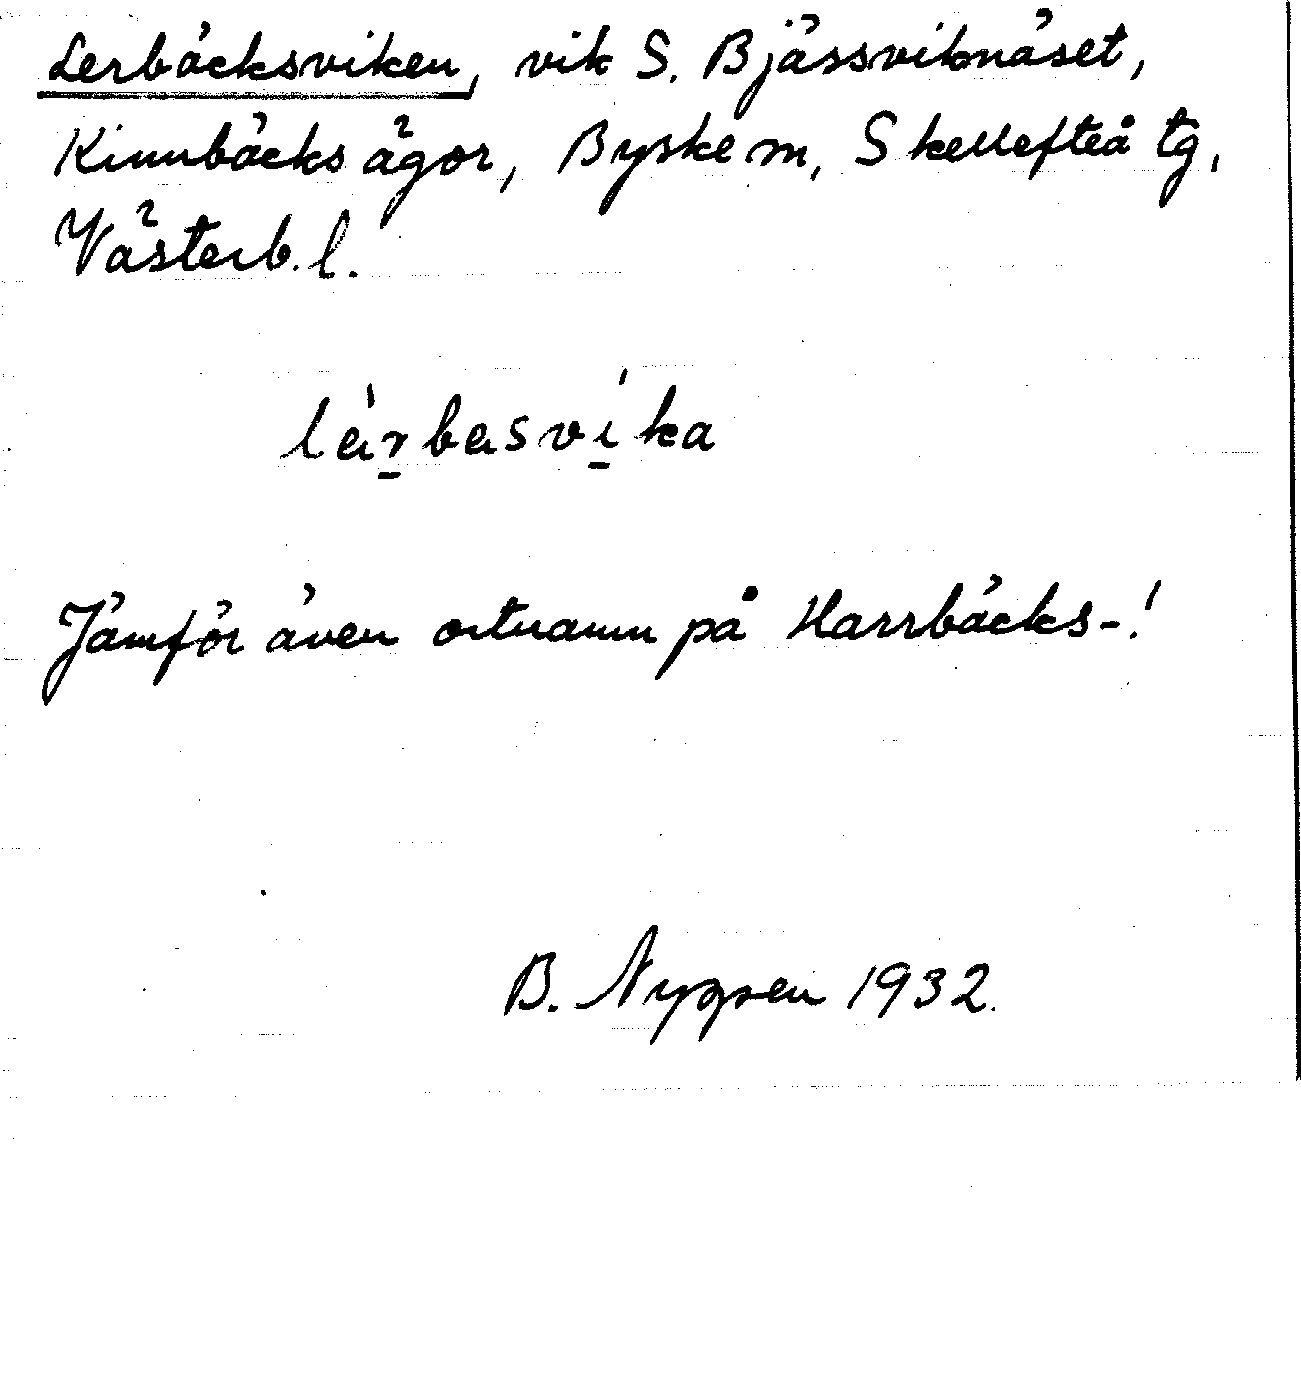 Lerbäcksviken, vik S. Bjässviknäset,
Kinnbäcks ägor, Byske sn, Skellefteå tg,
Västerb. l.
lärbasvika
Jämför även ortnamn på Harrbäcks-!
B. 1932.